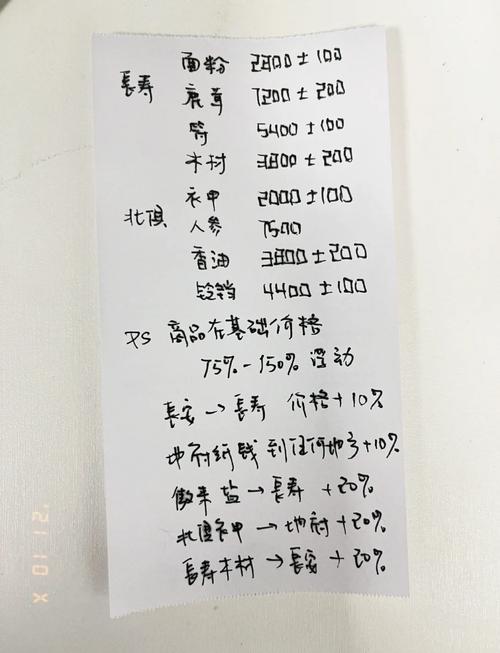 面粉 2900±100
長寿 鹿茸 7200±200
符 5400±100
木材 3800±200
衣甲 2000±100
北俱 人参 7500
香油 3800±200
铃铛 4400±100
PS 商品在基础价格
75%-150% 浮动
長安→長寿 价格+10%
地府纸钱到任何地方+10%
傲来盐→長寿 +20%
北俱衣甲→地府+20%
長寿木材→長安+20%
X 10 12